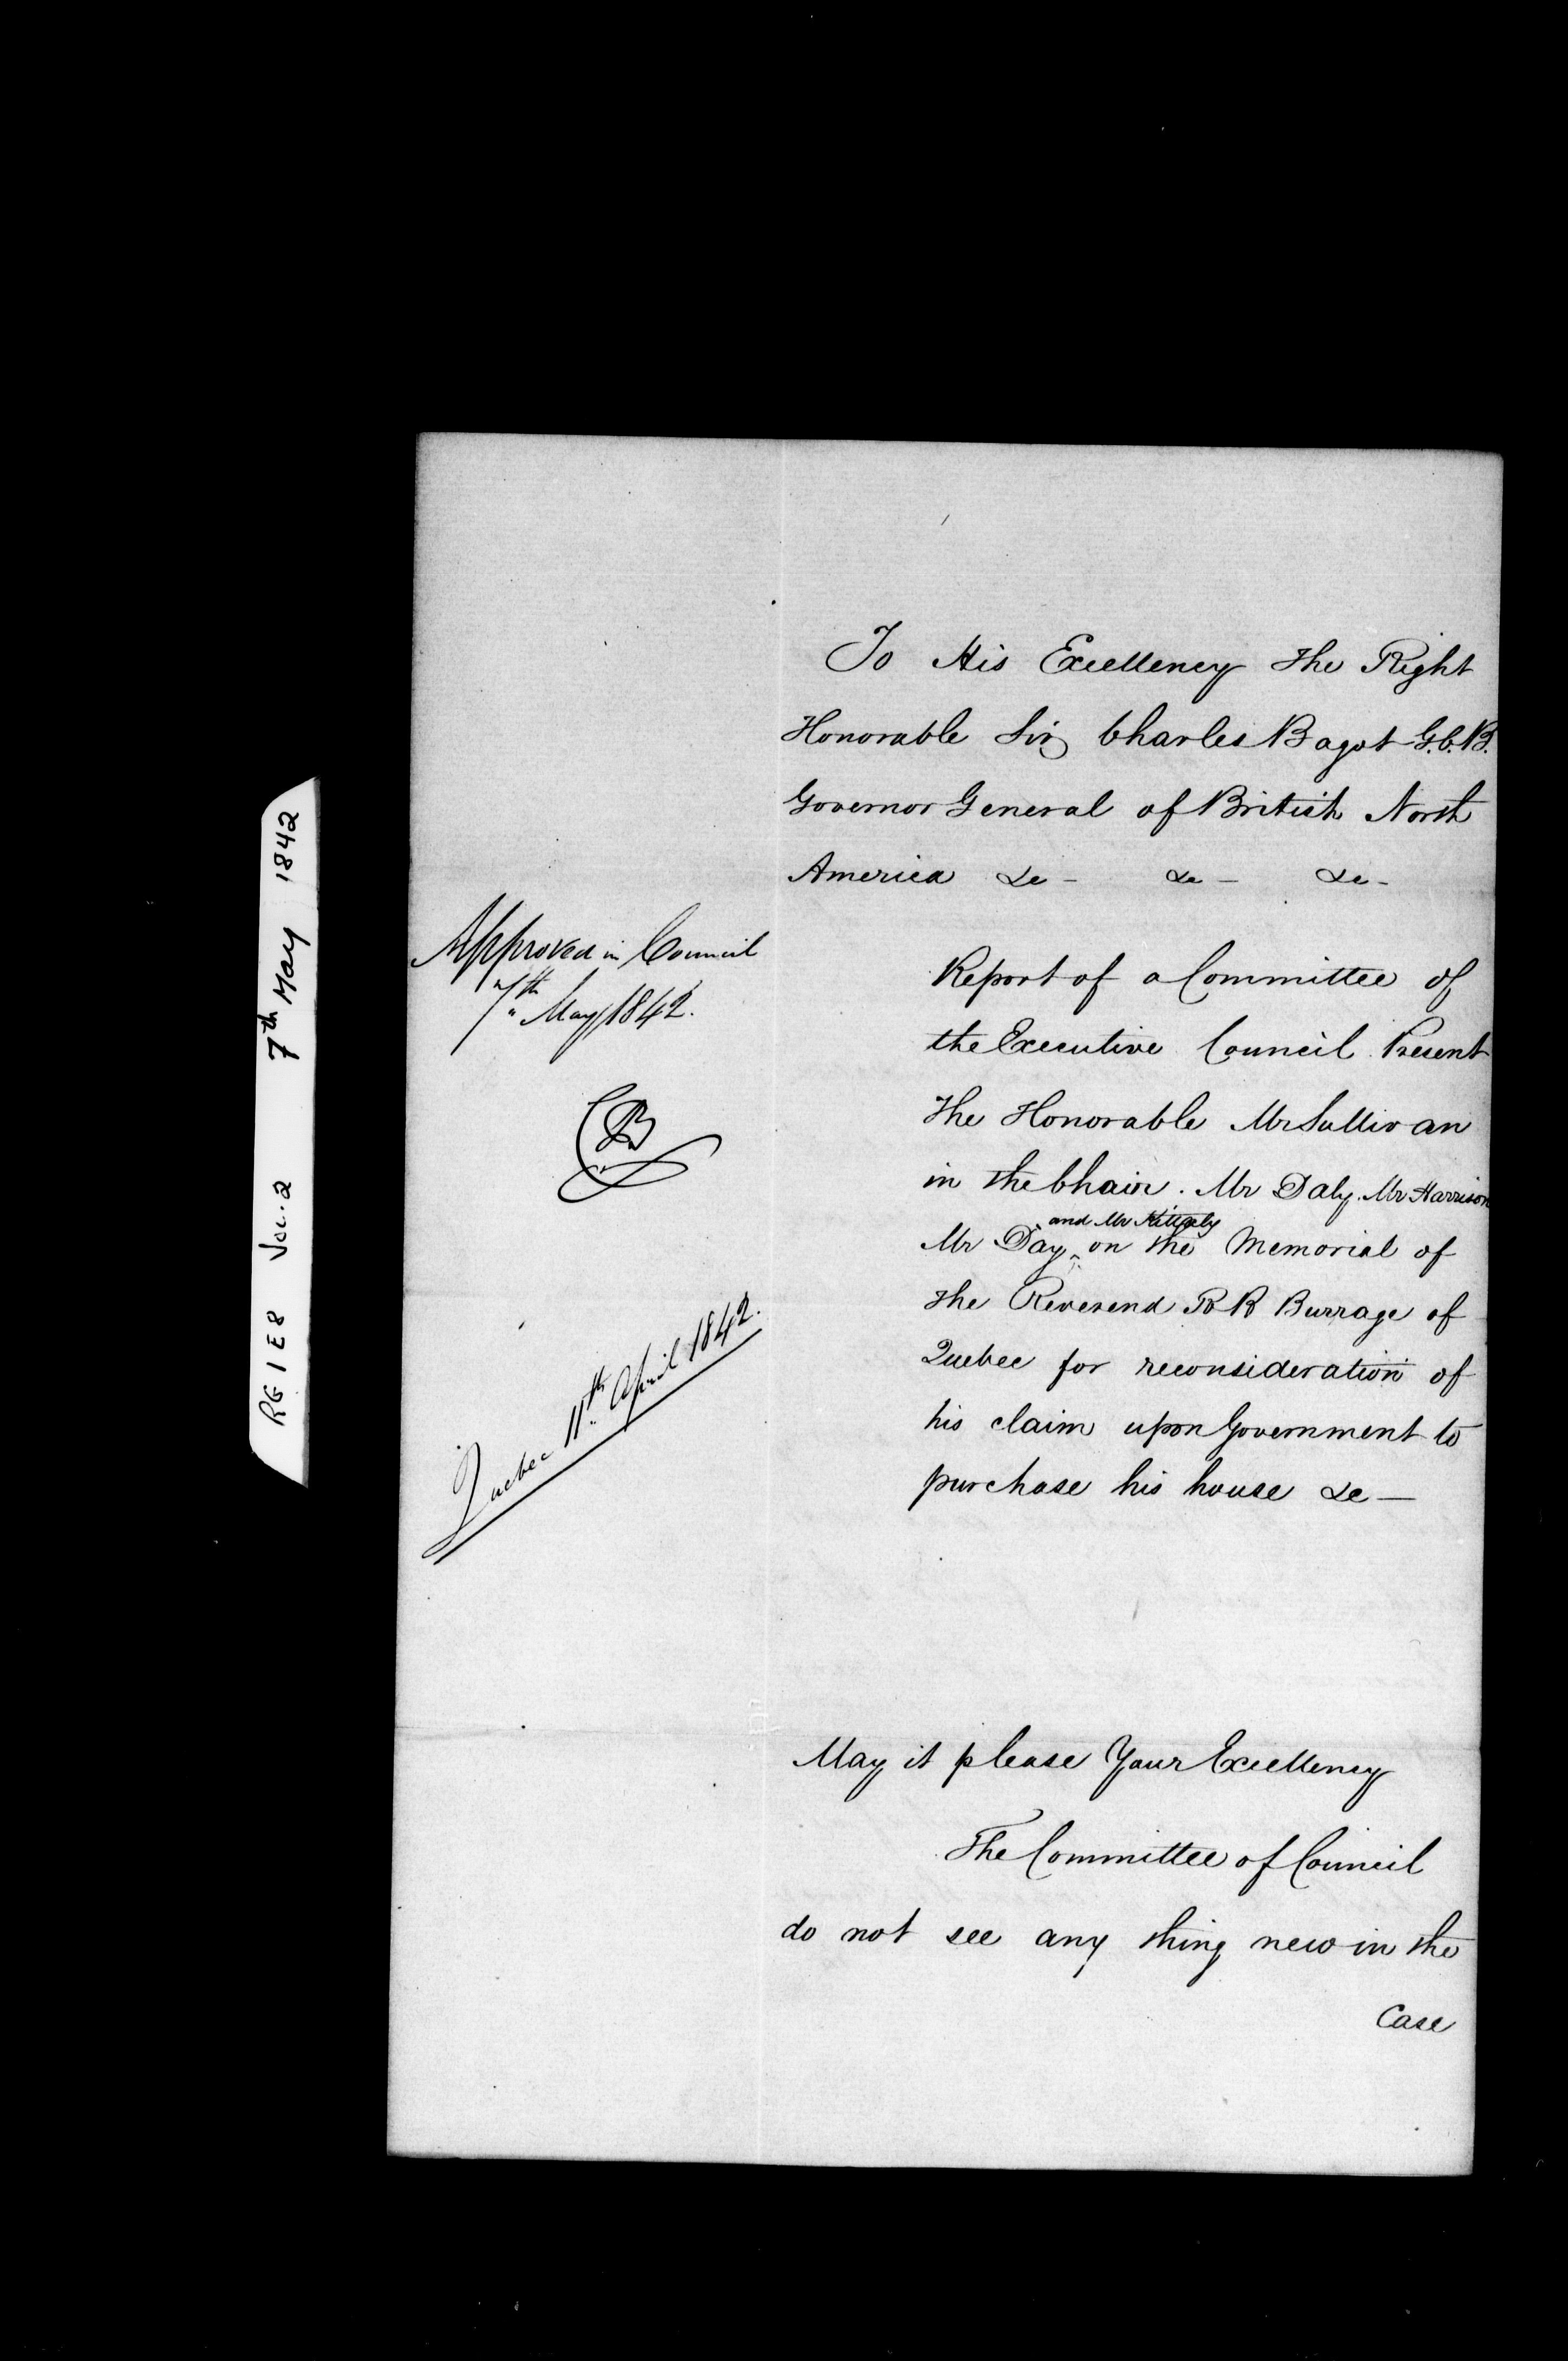 RG 1 E8 Vol. 2 7th May 1842
To His Excellency The Right
Honorable Sir Charles Bagot G.C.B.
Governor General of British North
America &c - &c - &c -
Approved in Council
7th May 1842.
CB
Report of a Committee of
the Executive Council Present
The Honorable Mr Sullivan
in the Chair. Mr Daly. Mr Harrison
and Mr Killaly
Mr Day ^ on the Memorial of
the Reverend R R Burrage of
Quebec for reconsideration of
his claim upon Government to
purchase his house &c —
Quebec 11th April 1842.
May it please Your Excellency
The Committee of Council
do not see any thing new in the
Case